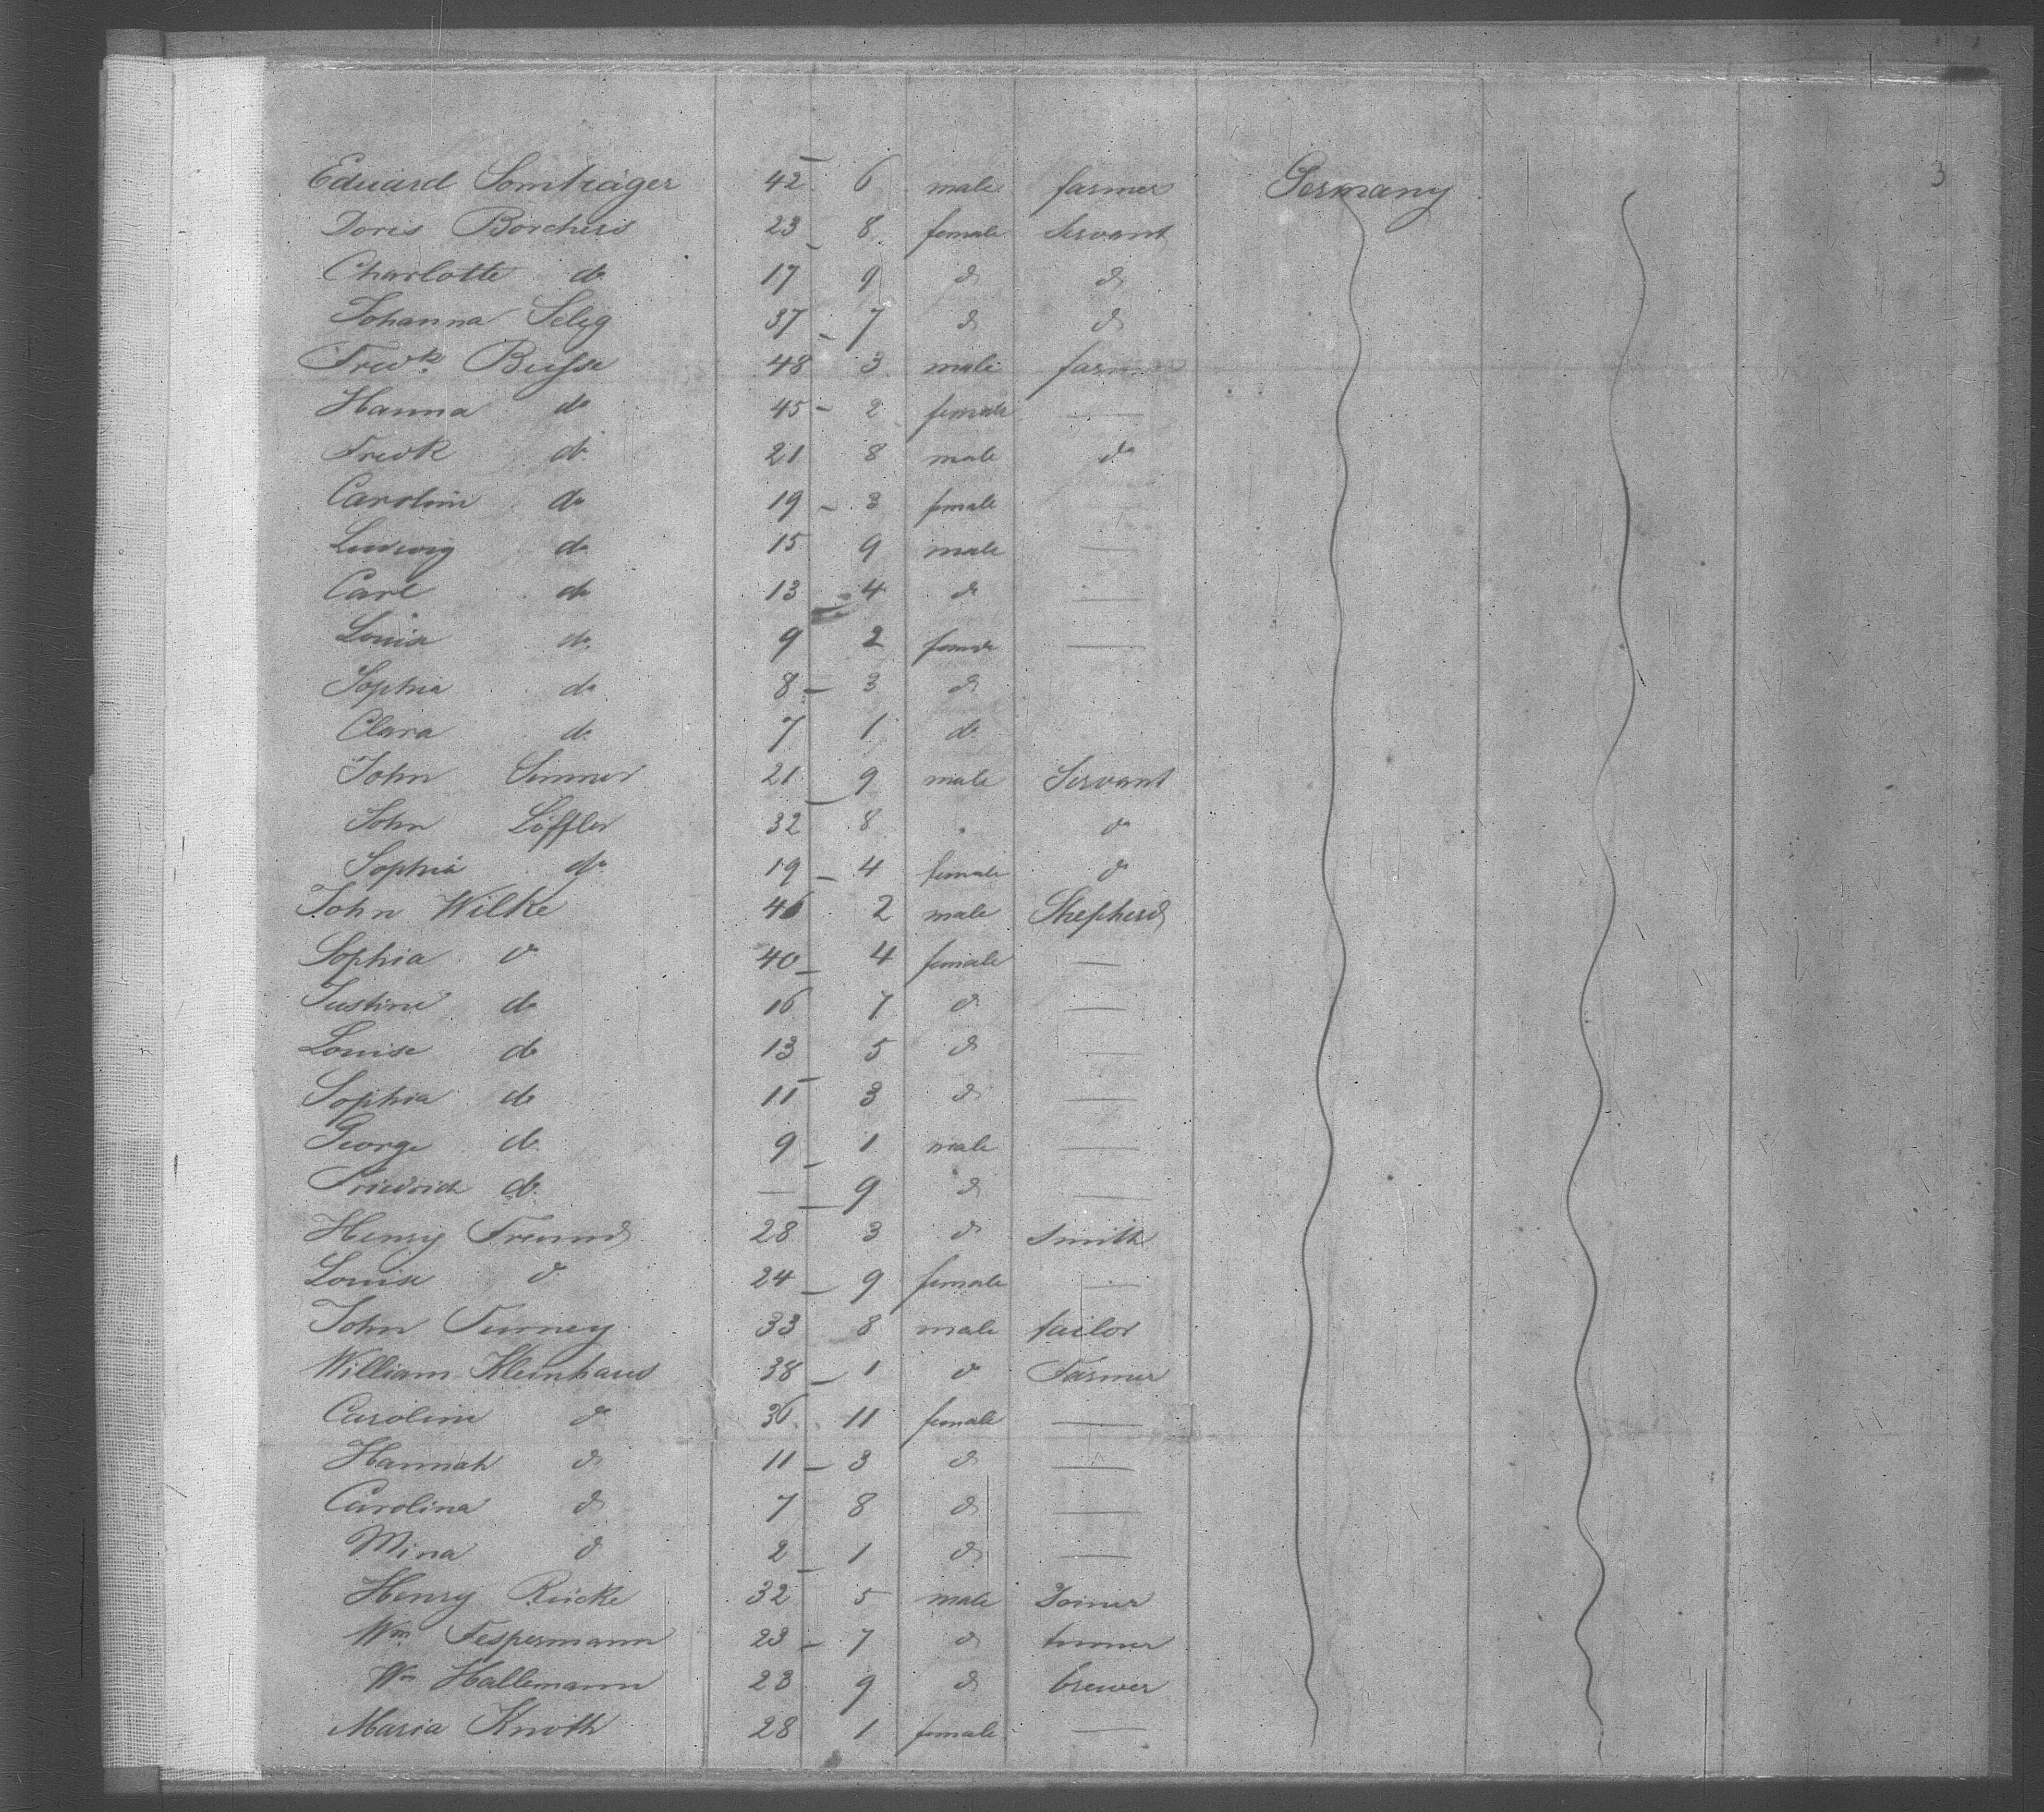 3
Eduard Somträger 42 6 male farmer Germany
Doris Borchers 23 8 female Servant
Charlotte do 17 9 do do
Johanna Selig 37 7 do do
Fredk. Busse 48 3 male farmer
Hanna do 45 2 female —
Fredk do 21 8 male do
Carolin do 19 3 female
Ludwig do 15 9 male —
Carl do 13 4 do —
Louise do 9 2 female —
Sophia do 8 3 do
Clara do 7 1 do
John Simmer 21 9 male Servant
John Löffler 32 8 " do
Sophia do 19 4 female do
John Wilke 46 2 male Shepherd
Sophia do 40 4 female —
Justine do 16 7 do —
Louise do 13 5 do —
Sophia do 11 3 do —
George do 9 1 male —
Friedrich do — 9 do —
Henry Freund 28 3 do Smith
Louise do 24 9 female —
John Turney 33 8 male tailor
William Kleinhaus 38 1 do Farmer
Carolin do 36 11 female —
Hannah do 11 3 do —
Carolina do 7 8 do —
Mina do 2 1 do —
Henry Rücke 32 5 male Joiner
Wm Fespermann 23 7 do turner
Wm Hallemann 23 9 do brewer
Maria Knoth 28 1 female —